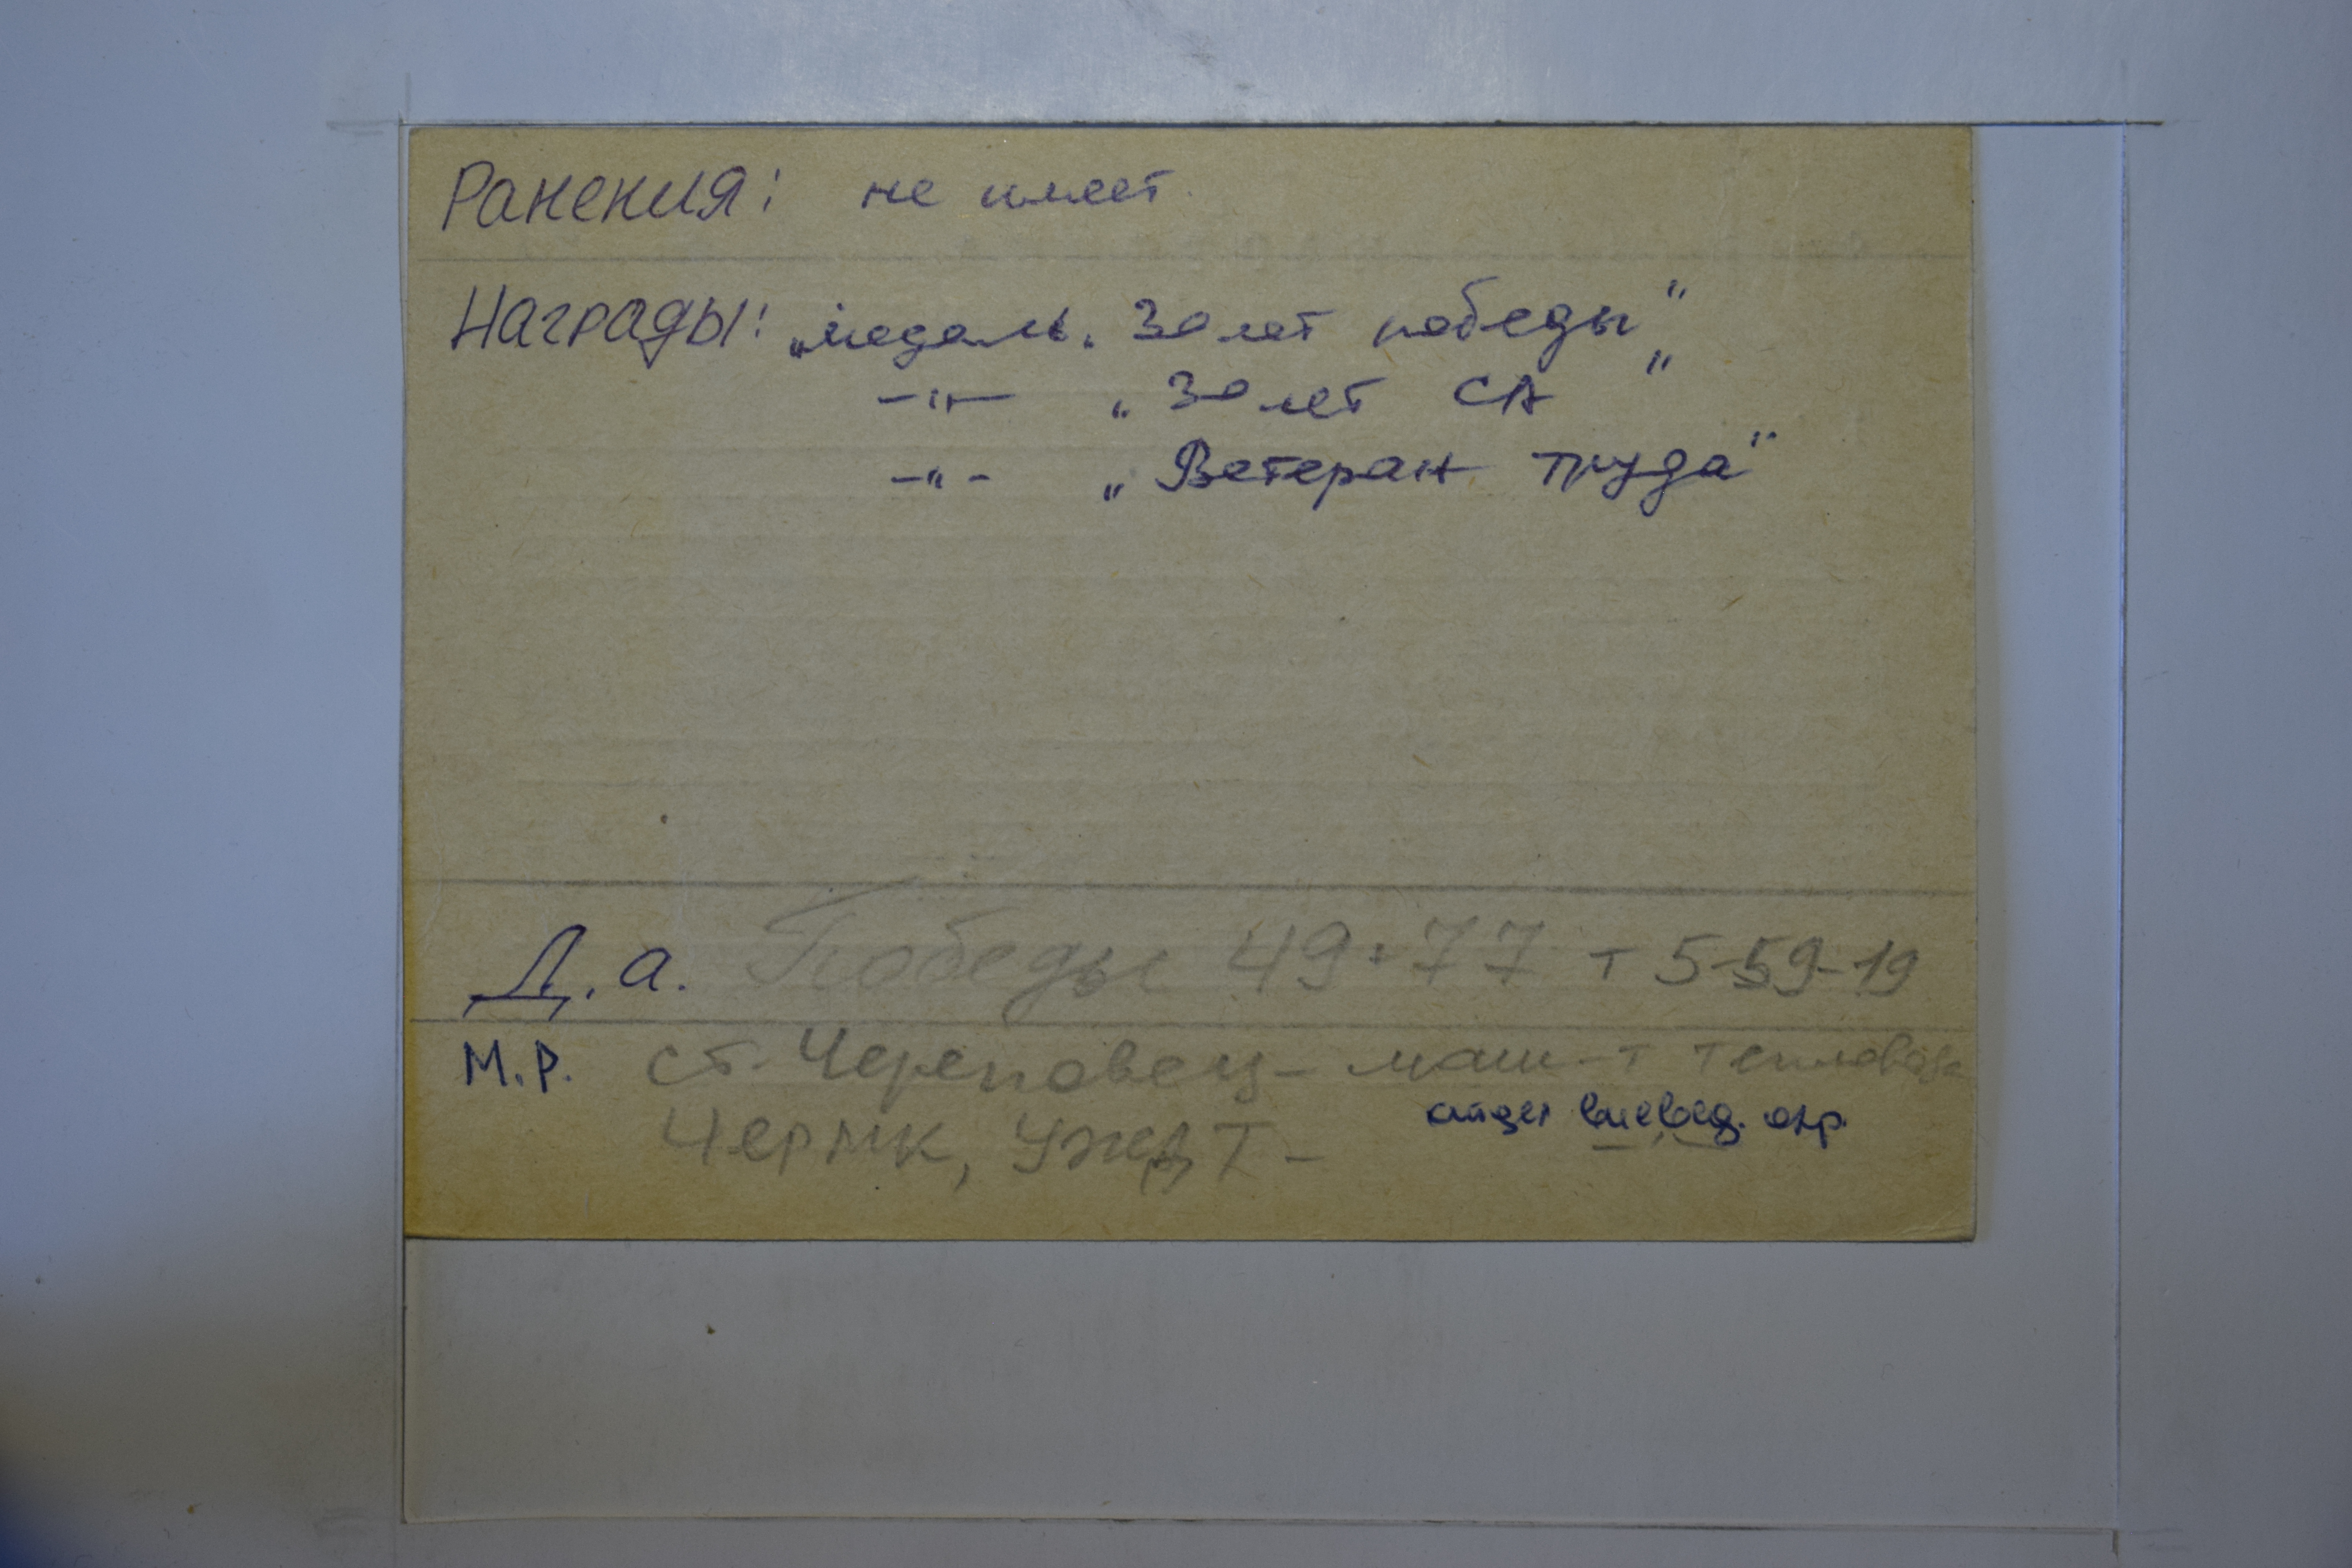 Ранения: не имеет.
Награды: „медаль. 30 лет победы"
—"— „30 лет СА "
—"— „Ветеран труда"
Д.а. Победы 49-77 т 5-59-19
М.Р. ст. Череповец - маш-т тепловоза
вневед. охр.
ЧерМК, УЖДТ -